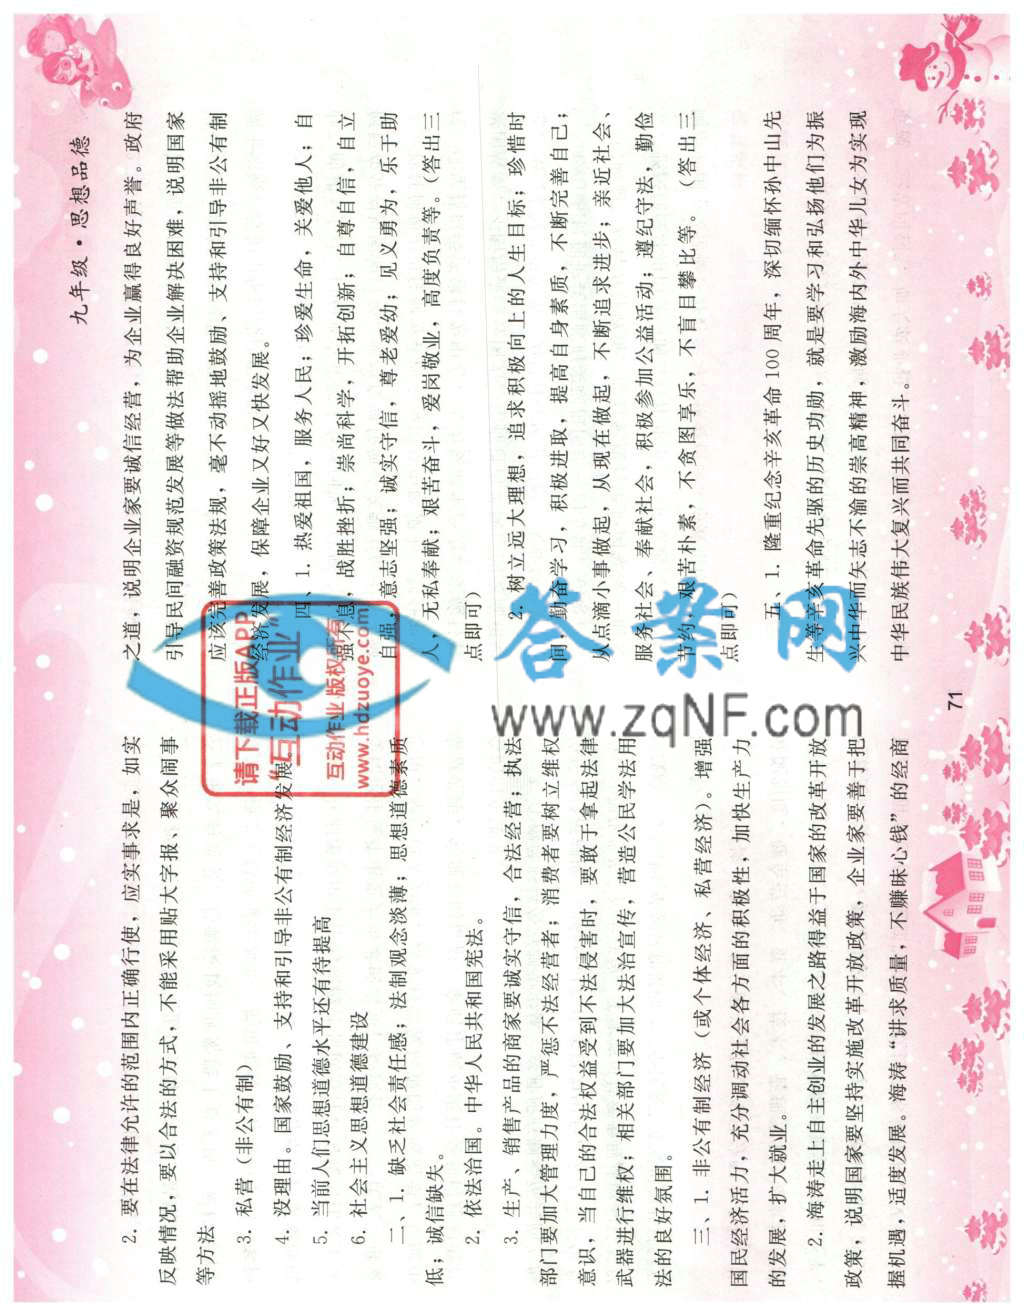 九年级·思想品德
2. 要在法律允许的范围内正确行使，应实事求是，如实
反映情况，要以合法的方式，不能采用贴大字报、聚众闹事
等方法
3. 私营（非公有制）
4. 没理由。国家鼓励、支持和引导非公有制经济发展。
5. 当前人们思想道德水平还有待提高
6. 社会主义思想道德建设
二、1. 缺乏社会责任感；法制观念淡薄；思想道德素质
低；诚信缺失。
2. 依法治国。中华人民共和国宪法。
3. 生产、销售产品的商家要诚实守信，合法经营；执法
部门要加大管理力度，严惩不法经营者；消费者要树立维权
意识，当自己的合法权益受到不法侵害时，要敢于拿起法律
武器进行维权；相关部门要加大法治宣传，营造公民学法用
法的良好氛围。
三、1. 非公有制经济（或个体经济、私营经济）。增强
国民经济活力，充分调动社会各方面的积极性，加快生产力
的发展，扩大就业。
2. 海涛走上自主创业的发展之路得益于国家的改革开放
政策，说明国家要坚持实施改革开放政策，企业家要善于把
握机遇，适度发展。海涛“讲求质量，不赚昧心钱”的经商
之道，说明企业家要诚信经营，为企业赢得良好声誉。政府
引导民间融资规范发展等做法帮助企业解决困难，说明国家
应该完善政策法规，毫不动摇地鼓励、支持和引导非公有制
经济发展，保障企业又好又快发展。
四、1. 热爱祖国，服务人民；珍爱生命，关爱他人；自
强不息，战胜挫折；崇尚科学，开拓创新；自尊自信，自立
自强，意志坚强；诚实守信，尊老爱幼；见义勇为，乐于助
人，无私奉献；艰苦奋斗，爱岗敬业，高度负责等。（答出三
点即可）
2. 树立远大理想，追求积极向上的人生目标；珍惜时
间，勤奋学习，积极进取，提高自身素质，不断完善自己；
从点滴小事做起，从现在做起，不断追求进步；亲近社会、
服务社会、奉献社会，积极参加公益活动；遵纪守法，勤俭
节约，艰苦朴素，不贪图享乐，不盲目攀比等。（答出三
点即可）
五、1. 隆重纪念辛亥革命100周年，深切缅怀孙中山先
生等辛亥革命先驱的历史功勋，就是要学习和弘扬他们为振
兴中华而矢志不渝的崇高精神，激励海内外中华儿女为实现
中华民族伟大复兴而共同奋斗。
71
请下载正版APP
“互动作业”
互动作业 版权所有
www.hdzuoye.com
答案网
www.zqNF.com